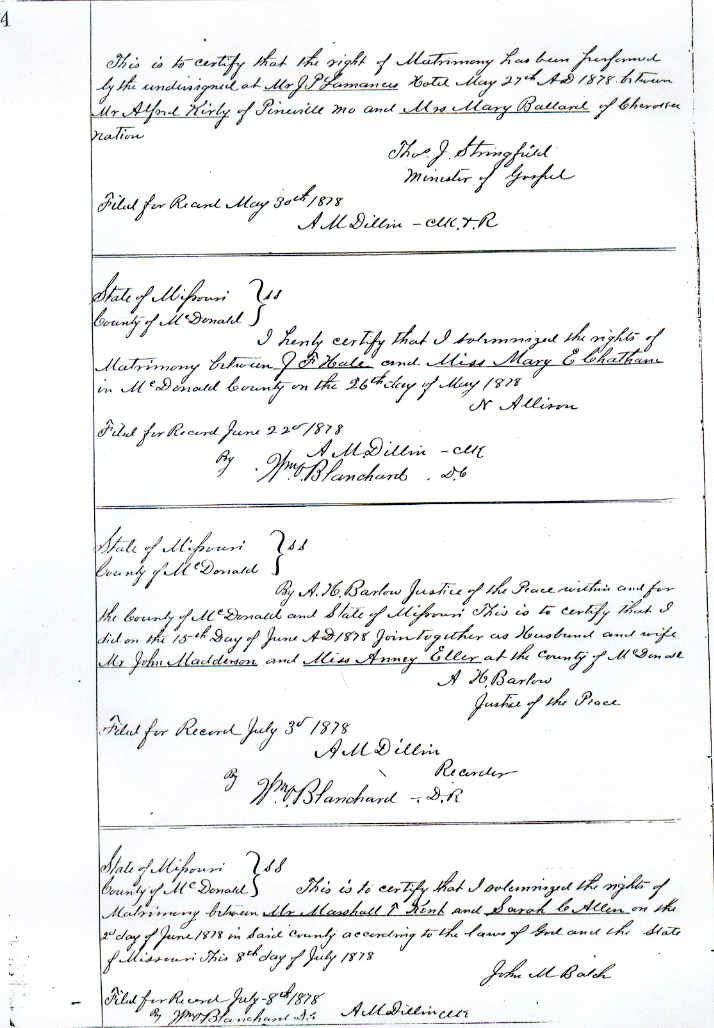 4
This is to certify that the right of Matrimony has been performed
by the undersigned at Mr J P Lamances Hotel May 27th AD 1878 between
Mr Alfred Kirby of Pineville Mo and Mrs Mary Ballard of Cherokee
Nation
Thos. J. Stringfield
Minister of Gospel
Filed for Record May 30th 1878
A M Dillin - Clk. & R
State of Missouri } ss
County of McDonald
I herby certify that I solemnized the rights of
Matrimony between J F Hale and Miss Mary E Chatham
in McDonald County on the 26th day of May 1878
N Allison
Filed for Record June 22d 1878
A M Dillin - Clk
By Wm O Blanchard . D.C
State of Missouri } ss
County of McDonald
By A. H. Barlow Justice of the Peace within and for
the County of McDonald and State of Missouri This is to certify that I
did on the 15th Day of June AD 1878 Join together as Husband and wife
Mr John Madderson and Miss Anney Eller at the County of McDonald
A H. Barlow
Justice of the Peace
Filed for Record July 3d 1878
A M Dillin
Recorder
By Wm O Blanchard - D.R
State of Missouri } ss
County of McDonald This is to certify that I solemnized the rights of
Matrimony between Mr Marshall T Kent and Sarah C Allen on the
2d day of June 1878 in Said County according to the laws of God and the State
of Missouri This 8th day of July 1878
John M Balch
Filed for Record July - 8th 1878
By Wm O Blanchard D.C A M Dillin Clk